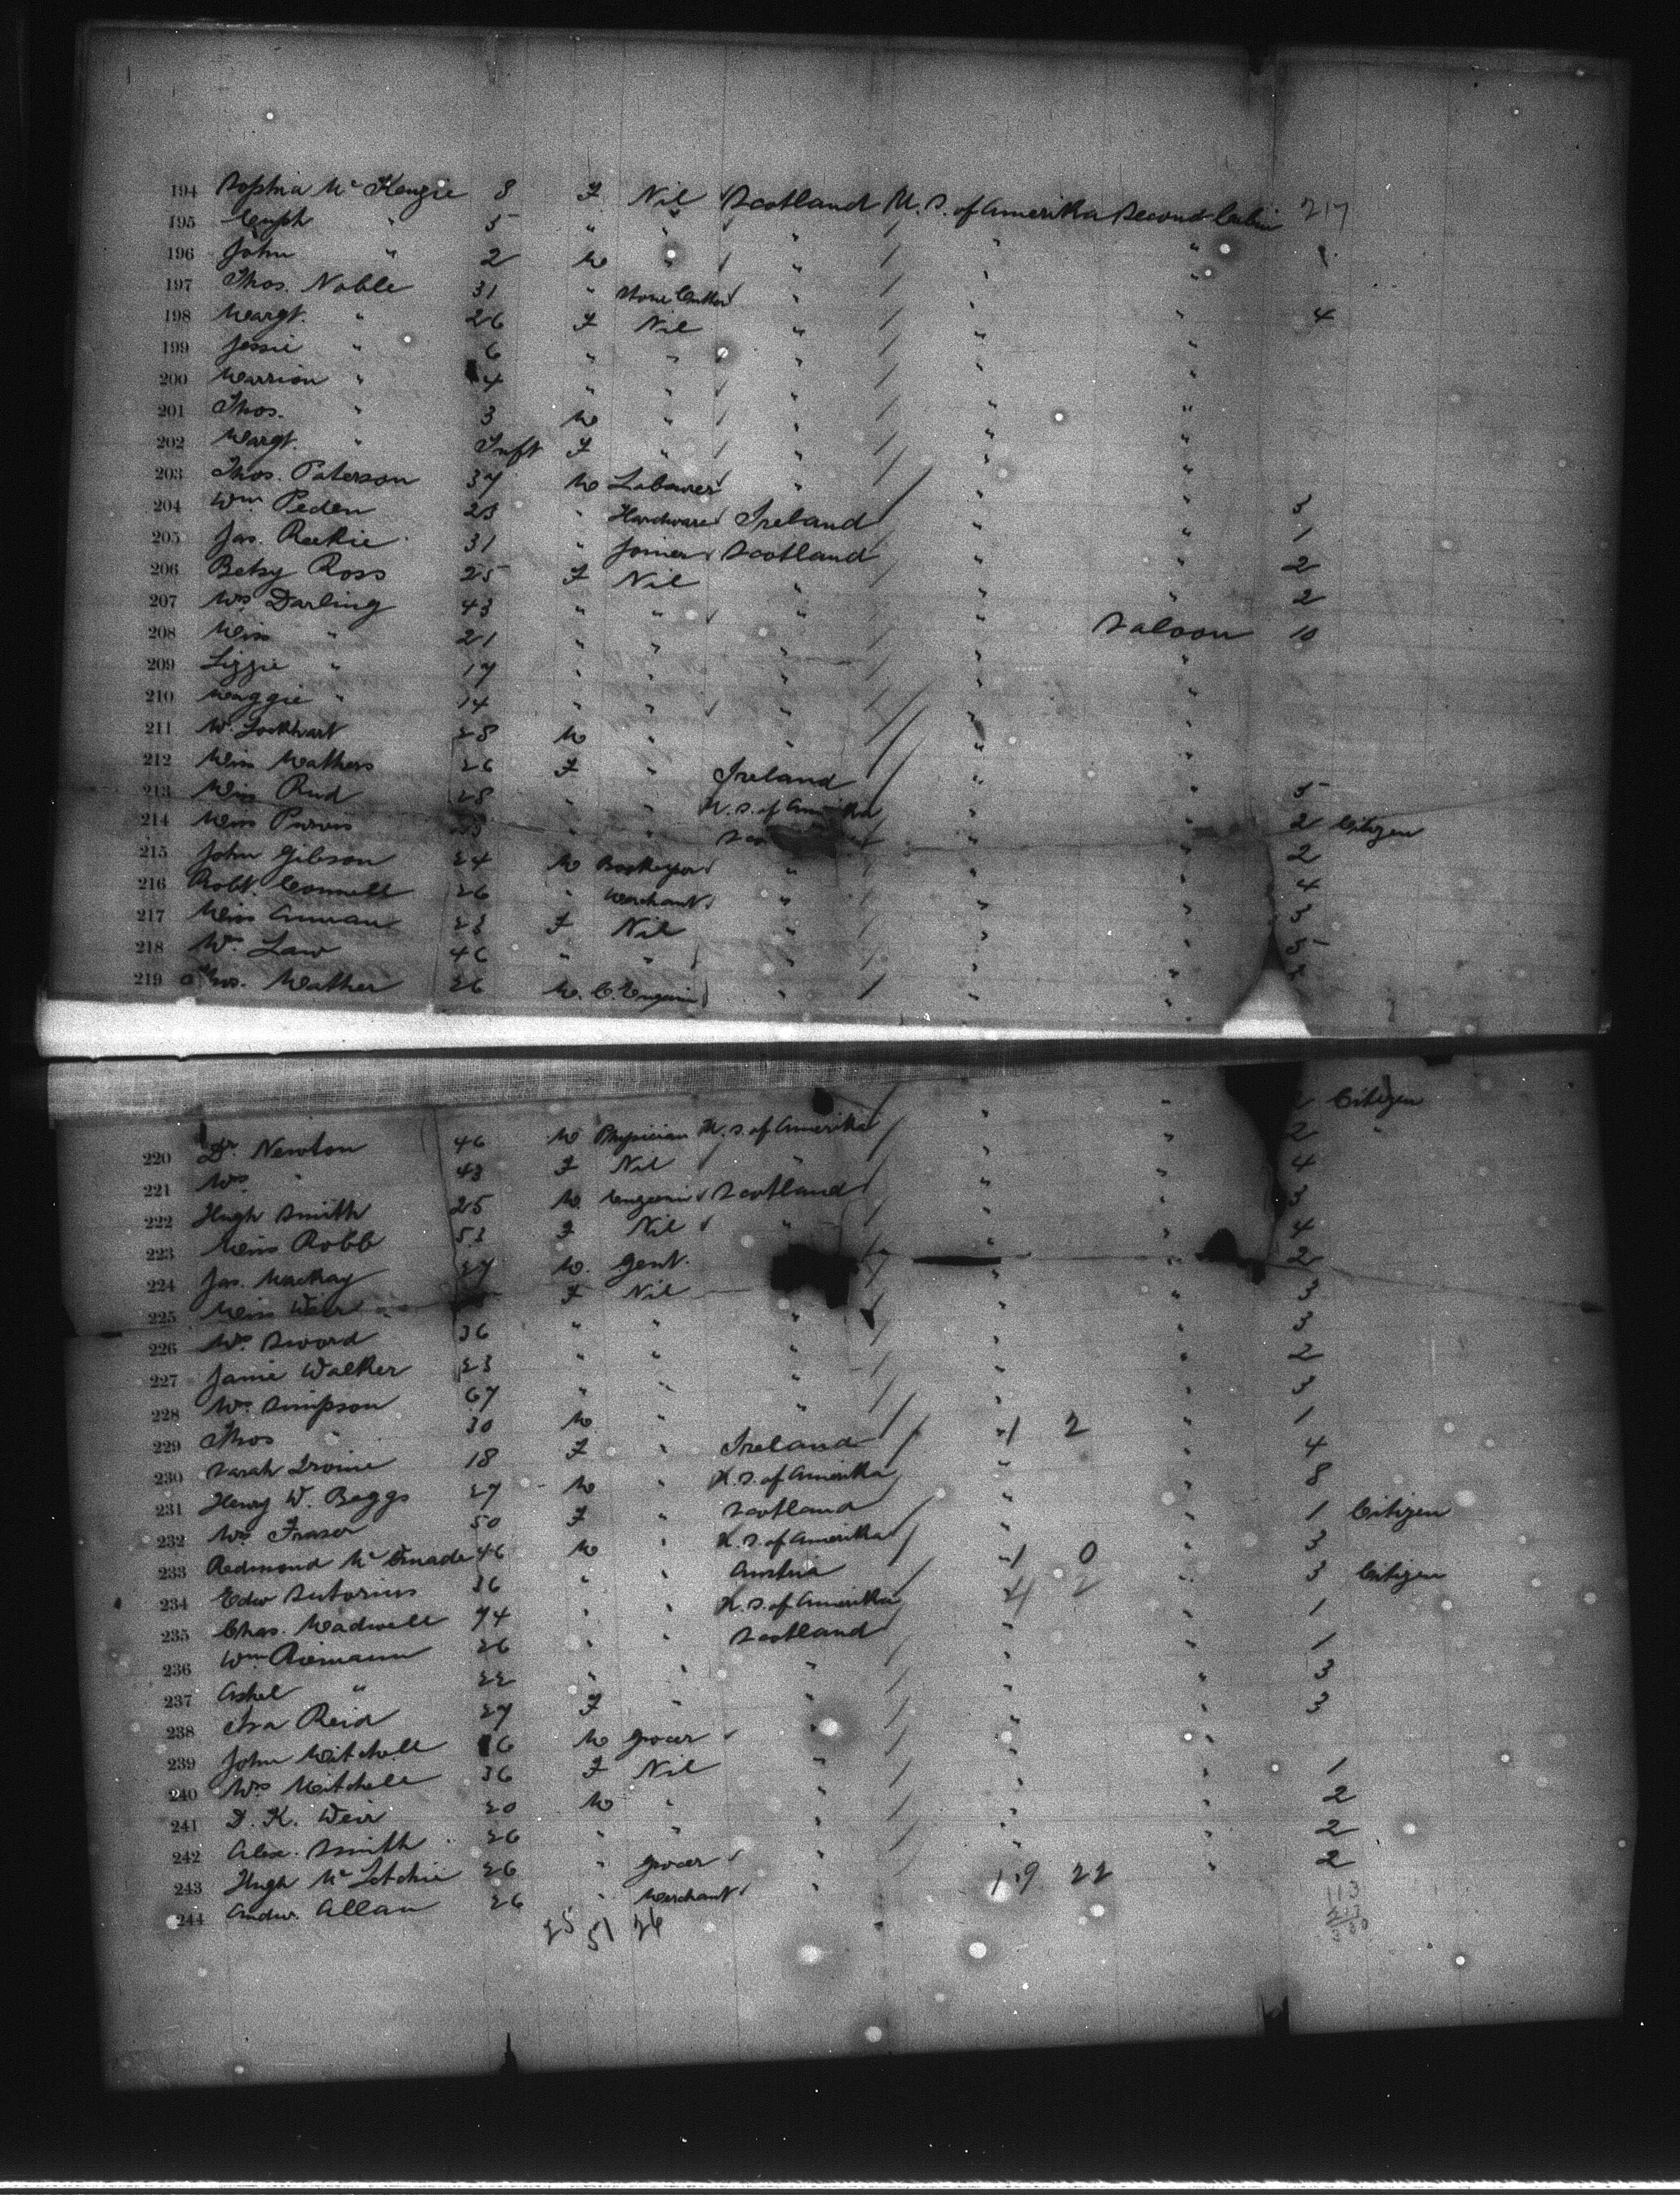 194 Sophia McKenzie 8 F Nil Scotland U.S. of Amerika Second Cabin 217
195 Euph " 5 " " " " "
196 John " 2 M " " " "
197 Thos. Noble 31 " Stone Cutter " " " 4
198 Margt. " 26 F Nil " " "
199 Jessie " 6 " " " " "
200 Marrion " 4 " " " " "
201 Thos. " 3 M " " " "
202 Margt. " Inft F " " " "
203 Thos. Paterson 37 M Labourer " " " 3
204 Wm Peden 23 " Hardware Ireland " " 1
205 Jas. Reekie 31 " Joiner Scotland " " 2
206 Betsy Ross 25 F Nil " " " 2
207 Mrs Darling 43 " " " " Saloon 10
208 Miss " 21 " " " " "
209 Lizzie " 17 " " " " "
210 Maggie " 14 " " " " "
211 W. Lockhart 28 M " " " "
212 Miss Mathers 26 F " Ireland " " 5
213 Miss Rud 28 " " U.S. of Amerika " " 2 Citizen
214 Miss Purvis " " " " 2
215 John Gibson 24 M Bookkeeper " " " 4
216 Robt. Connell 26 " Merchant " " " 3
217 Miss Annan 23 F Nil " " " 5
218 Mrs Law 46 " " " " "
219 Thos. Mather 26 M C. Engin " " "
Citizen
220 Dr. Newton 46 M Physician U.S. of Amerika " " 2 "
221 Mrs " 43 F Nil " " " 4
222 Hugh Smith 25 M Engeenir Scotland " " 3
223 Miss Robb 53 F Nil " " " 4
224 Jas. Mackay 27 M. Gent. " " 2
225 Miss Weir F Nil " " 3
226 Mrs Sword 36 " " " " " 3
227 Janie Walker 23 " " " " " 2
228 Mrs Simpson 67 " " " " " 3
229 Thos " 30 M " " 1 2 " 1
230 Sarah Irvine 18 F " Ireland " " 4
231 Henry W. Beggs 27 M " U.S. of Amerika " " 8
232 Mrs Fraser 50 F " Scotland " " 1 Citizen
233 Redmond Mc 46 M " U.S. of Amerika 1 0 " 3
234 Edw Sutorius 36 " " Austria 4 2 " 3 Citizen
235 Chas. Madwell 74 " " U.S. of Amerika " " 1
236 Wm Riemann 26 " " Scotland " " 1
237 Ashel " 22 " " " " " 3
238 Isa Reid 27 F " " " " 3
239 John Mitchell 6 M Grocer " " "
240 Mrs Mitchell 36 F Nil " " " 1
241 D. K. Weir 20 M " " " " 2
242 Alex. Smith 26 " " " " " 2
243 Hugh McLetchie 26 " Grocer " 19 22 " 2
244 Andw. Allan 26 " Merchant " 113
25 51 26